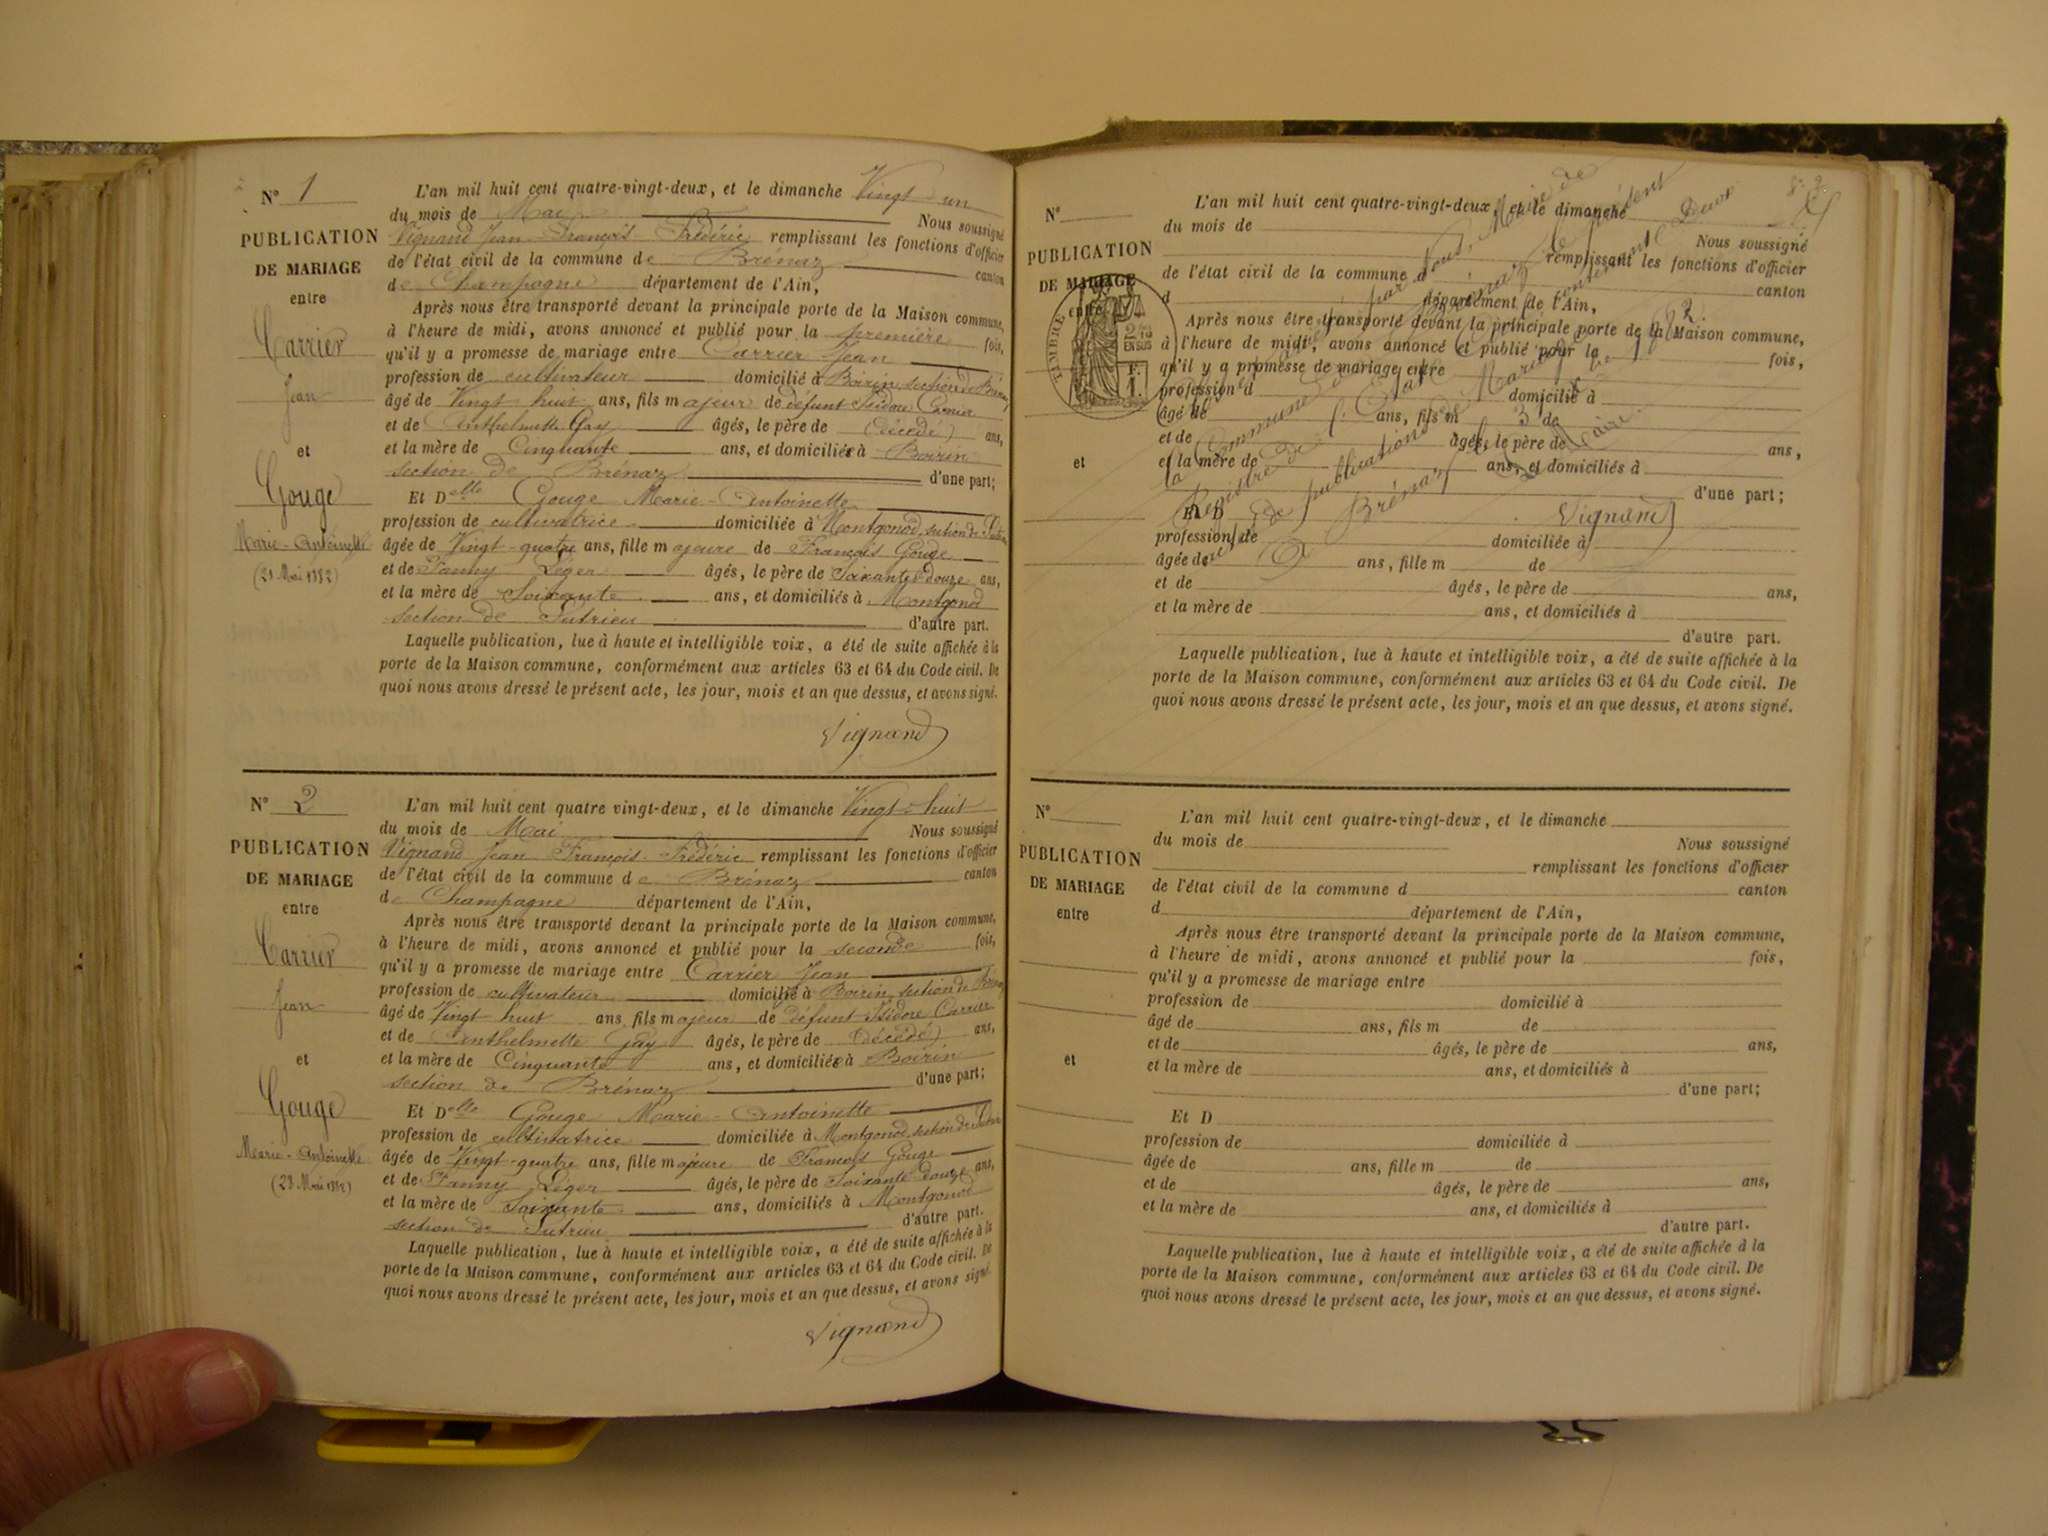 N° 1
PUBLICATION
DE MARIAGE
entre
Carrier
Jean
et
Gouge
Marie-Antoinette
(21 Mai 1882)
L'an mil huit cent quatre-vingt-deux, et le dimanche Vingt un
du mois de Mai Nous soussigné
Vignand Jean François Frédéric remplissant les fonctions d'officier
de l'état civil de la commune de Brénaz canton
de Champagne département de l'Ain,
Après nous être transporté devant la principale porte de la Maison commune,
à l'heure de midi, avons annoncé et publié pour la première fois,
qu'il y a promesse de mariage entre Carrier Jean
profession de cultivateur domicilié à Boirin, section de Brénaz
âgé de Vingt huit ans, fils majeur de défunt Isidore Carrier
et de Anthelmette Gay âgés, le père de (décédé) ans,
et la mère de Cinquante ans, et domiciliés à Boirin
section de Brénaz d'une part;
Et Delle Gouge Marie-Antoinette
profession de cultivatrice domiciliée à Montgonod, section de Sutrieu
âgée de Vingt-quatre ans, fille majeure de François Gouge
et de Fanny Léger âgés, le père de Soixante douze ans,
et la mère de Soixante ans, et domiciliés à Montgonod
section de Sutrieu d'autre part.
Laquelle publication, lue à haute et intelligible voix, a été de suite affichée à la
porte de la Maison commune, conformément aux articles 63 et 64 du Code civil. De
quoi nous avons dressé le présent acte, les jour, mois et an que dessus, et avons signé.
Vignand
N° 2
PUBLICATION
DE MARIAGE
entre
Carrier
Jean
et
Gouge
Marie-Antoinette
(28 Mai 1882)
L'an mil huit cent quatre vingt-deux, et le dimanche Vingt-huit
du mois de Mai Nous soussigné
Vignand Jean François Frédéric remplissant les fonctions d'officier
de l'état civil de la commune de Brénaz canton
de Champagne département de l'Ain,
Après nous être transporté devant la principale porte de la Maison commune,
à l'heure de midi, avons annoncé et publié pour la seconde fois,
qu'il y a promesse de mariage entre Carrier Jean
profession de cultivateur domicilié à Boirin, section de Brénaz
âgé de Vingt huit ans, fils majeur de défunt Isidore Carrier
et de Anthelmette Gay âgés, le père de (décédé) ans,
et la mère de Cinquante ans, et domiciliés à Boirin
section de Brénaz d'une part;
Et Delle Gouge Marie-Antoinette
profession de cultivatrice domiciliée à Montgonod, section de Sutrieu
âgée de Vingt-quatre ans, fille majeure de François Gouge
et de Fanny Léger âgés, le père de Soixante douze ans,
et la mère de Soixante ans, domiciliés à Montgonod
section de Sutrieu d'autre part.
Laquelle publication, lue à haute et intelligible voix, a été de suite affichée à la
porte de la Maison commune, conformément aux articles 63 et 64 du Code civil. De
quoi nous avons dressé le présent acte, les jour, mois et an que dessus, et avons signé.
Vignand
N°
PUBLICATION
DE MARIAGE
entre
TIMBRE
2/10
EN SUS
F.
1.
et
L'an mil huit cent quatre-vingt-deux, et le dimanche
du mois de Nous soussigné
remplissant les fonctions d'officier
de l'état civil de la commune d canton
d département de l'Ain,
Après nous être transporté devant la principale porte de la Maison commune,
à l'heure de midi, avons annoncé et publié pour la fois,
qu'il y a promesse de mariage entre
profession d domicilié à
âgé de ans, fils m de
et de âgés, le père de ans,
et la mère de ans, et domiciliés à
d'une part;
Et D
profession de domiciliée à
âgée de ans, fille m de
et de âgés, le père de ans,
et la mère de ans, et domiciliés à
d'autre part.
Laquelle publication, lue à haute et intelligible voix, a été de suite affichée à la
porte de la Maison commune, conformément aux articles 63 et 64 du Code civil. De
quoi nous avons dressé le présent acte, les jour, mois et an que dessus, et avons signé.
par nous Maire de
la Commune de Brénaz le présent
Registre de l'Etat Civil contenant Deux
de publications de Mariage
Brénaz 1882.
Le Maire.
Vignand
N°
PUBLICATION
DE MARIAGE
entre
et
L'an mil huit cent quatre-vingt-deux, et le dimanche
du mois de Nous soussigné
remplissant les fonctions d'officier
de l'état civil de la commune d canton
d département de l'Ain,
Après nous être transporté devant la principale porte de la Maison commune,
à l'heure de midi, avons annoncé et publié pour la fois,
qu'il y a promesse de mariage entre
profession de domicilié à
âgé de ans, fils m de
et de âgés, le père de ans,
et la mère de ans, et domiciliés à
d'une part;
Et D
profession de domiciliée à
âgée de ans, fille m de
et de âgés, le père de ans,
et la mère de ans, et domiciliés à
d'autre part.
Laquelle publication, lue à haute et intelligible voix, a été de suite affichée à la
porte de la Maison commune, conformément aux articles 63 et 64 du Code civil. De
quoi nous avons dressé le présent acte, les jour, mois et an que dessus, et avons signé.